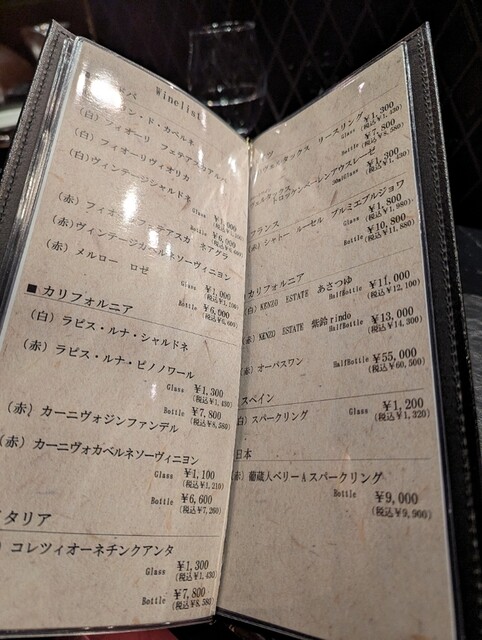 Winelist
(白) フィオーリ
(白) フィオーリヴィオリカ
(白) ヴィンテージシャルドネ
Glass
Bottle ¥6,000
(赤)
(赤) ヴィンテージカベルネソーヴィニヨン
(赤) メルロー ロゼ
Glass ¥1,000
(税込¥1,100)
Bottle ¥6,000
(税込¥6,600)
■ カリフォルニア
(白) ラピス・ルナ・シャルドネ
(赤) ラピス・ルナ・ピノノワール
Glass ¥1,300
(税込¥1,430)
Bottle ¥7,800
(税込¥8,580)
(赤) カーニヴォジンファンデル
(赤) カーニヴォカベルネソーヴィニヨン
Glass ¥1,100
(税込¥1,210)
Bottle ¥6,600
(税込¥7,260)
タリア
コレツィオーネチンクアンタ
Glass ¥1,300
(税込¥1,430)
Bottle ¥7,800
(税込¥8,580
リースリング
¥1,300
(税込¥1,430)
¥7,800
(税込¥8,580)
Glass ¥1,300
(税込¥1,430)
フランス
(赤) シャトー ルーセル プルミエブルジョワ
Glass ¥1,800
(税込¥1,980)
Bottle ¥10,800
(税込¥11,880)
カリフォルニア
(白) KENZO ESTATE あさつゆ
HalfBottle ¥11,000
(税込¥12,100)
(赤) KENZO ESTATE 紫鈴rindo
HalfBottle ¥13,000
(税込¥14,300)
(赤) オーパスワン
HalfBottle ¥55,000
(税込¥60,500)
スペイン
白) スパークリング
Glass ¥1,200
(税込¥1,320)
日本
赤) 葡蔵人ベリーAスパークリング
Bottle ¥9,000
(税込¥9,900)